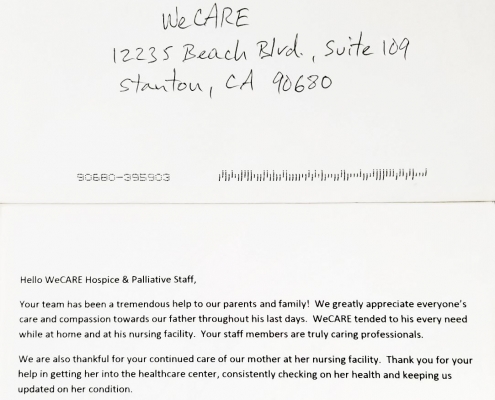 WeCARE
12235 Beach Blvd., Suite 109
Stanton, CA 90680
90680-395903
Hello WeCARE Hospice & Palliative Staff,
Your team has been a tremendous help to our parents and family!  We greatly appreciate everyone's
care and compassion towards our father throughout his last days.  WeCARE tended to his every need
while at home and at his nursing facility.  Your staff members are truly caring professionals.
We are also thankful for your continued care of our mother at her nursing facility.  Thank you for your
help in getting her into the healthcare center, consistently checking on her health and keeping us
updated on her condition.